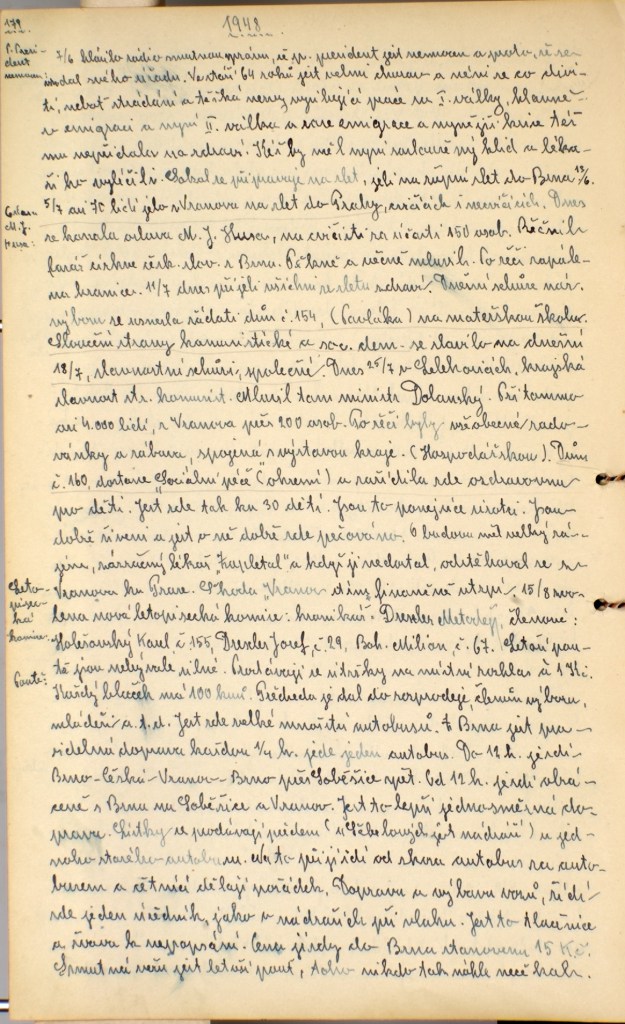 179
1948.
P. Presi-
dent
nemocen
7/6 hlásilo rádio smutnou zprávu, že p. president jest nemocen a proto, že se
vzdal svého úřadu. Ve stáří 64 roků jest velmi churav a není se co divi-
ti, neboť strádání a těžká nervy vypínající práce za I. války, hlavně
v emigraci a nyní II. válka a zase emigrace a nynější krise též
mu nepřidala na zdraví. Kéž by měl nyní zasloužený klid a léka-
ři ho vyléčili. Sokol se připravuje na slet, jeli na župní slet do Brna 13/6.
Oslava
M. J.
Husa:
5/7 asi 70 lidí jelo z Vranova na slet do Prahy, cvičících i necvičících. Dnes
se konala oslava M. J. Husa, na cvičišti za účasti 150 osob. Řečnil
farář církve česk. slov. z Brna. Pěkně a věcně mluvil. Po řeči zapále-
na hranice. 11/7 dnes přijeli všichni ze sletu zdraví. Dnešní schůze nár.
výboru se usnesla žádati dům č. 154, (Pavláka) na mateřskou školu.
Sloučení strany komunistické a soc. dem. se slavilo na dnešní
18/7, slavnostní schůzi, společné. Dnes 25/7 v Lelekovicích, krajská
slavnost str. komunist. Mluvil tam ministr Dolanský. Přítomno
asi 4.000 lidí, z Vranova přes 200 osob. Po řeči byly všeobecné rado-
vánky a zábava, spojená s výstavou kraje. (Hospodářskou). Dům
č. 160, dostane „Sociální péče“ (okresní) a zařídila zde ozdravovnu
pro děti. Jest zde tak ku 30 dětí. Jsou to ponejvíce sirotci. Jsou
dobře živeni a jest o ně dobře zde pečováno. O budovu měl velký zá-
jem, zázračný lékař „Kapletal“ a když ji nedostal, odstěhoval se z
Vranova ku Praze. Škoda „Vranov“ tím finančně utrpí. 15/8 zvo-
Leto-
pisec-
ká
komise:
lena nová letopisecká komise: kronikář. Drexler Metoděj, členové:
Holešovský Karel č. 155, Drexler Josef, č. 29, Boh. Milion, č. 67. Letoší pou-
Poutě:
tě jsou nebývale silné. Prodávají se útržky na místní rozhlas à 1 Kč.
Každý bloček má 100 kusů. Předseda je dal do rozprodeje, členům výboru,
mládeži a. t. d. Jest zde velké množství autobusů. Z Brna jest pra-
videlná doprava každou 1/4 h. jede jeden autobus. Do 12 h. jezdí
Brno-Česká-Vranov-Brno přes Soběšice zpět. Od 12 h. jezdí obrá-
ceně z Brna na Soběšice a Vranov. Jest to lepší jednosměrná do-
prava. Lístky se prodávají předem (jest nádraží) v jed-
noho starého autobusu. to přijíždí od shora autobus za auto-
busem a četníci dělají pořádek. Dopravu a výbavu vozů, řídí
zde jeden úředník, jako v nádražích při vlaku. Jest to tlačenice
a řvava k nepopsání. Cena jízdy do Brna stanovena 15 Kč.
Smutná jest letoší pouť, toho nikdo tak náhle nečekal.